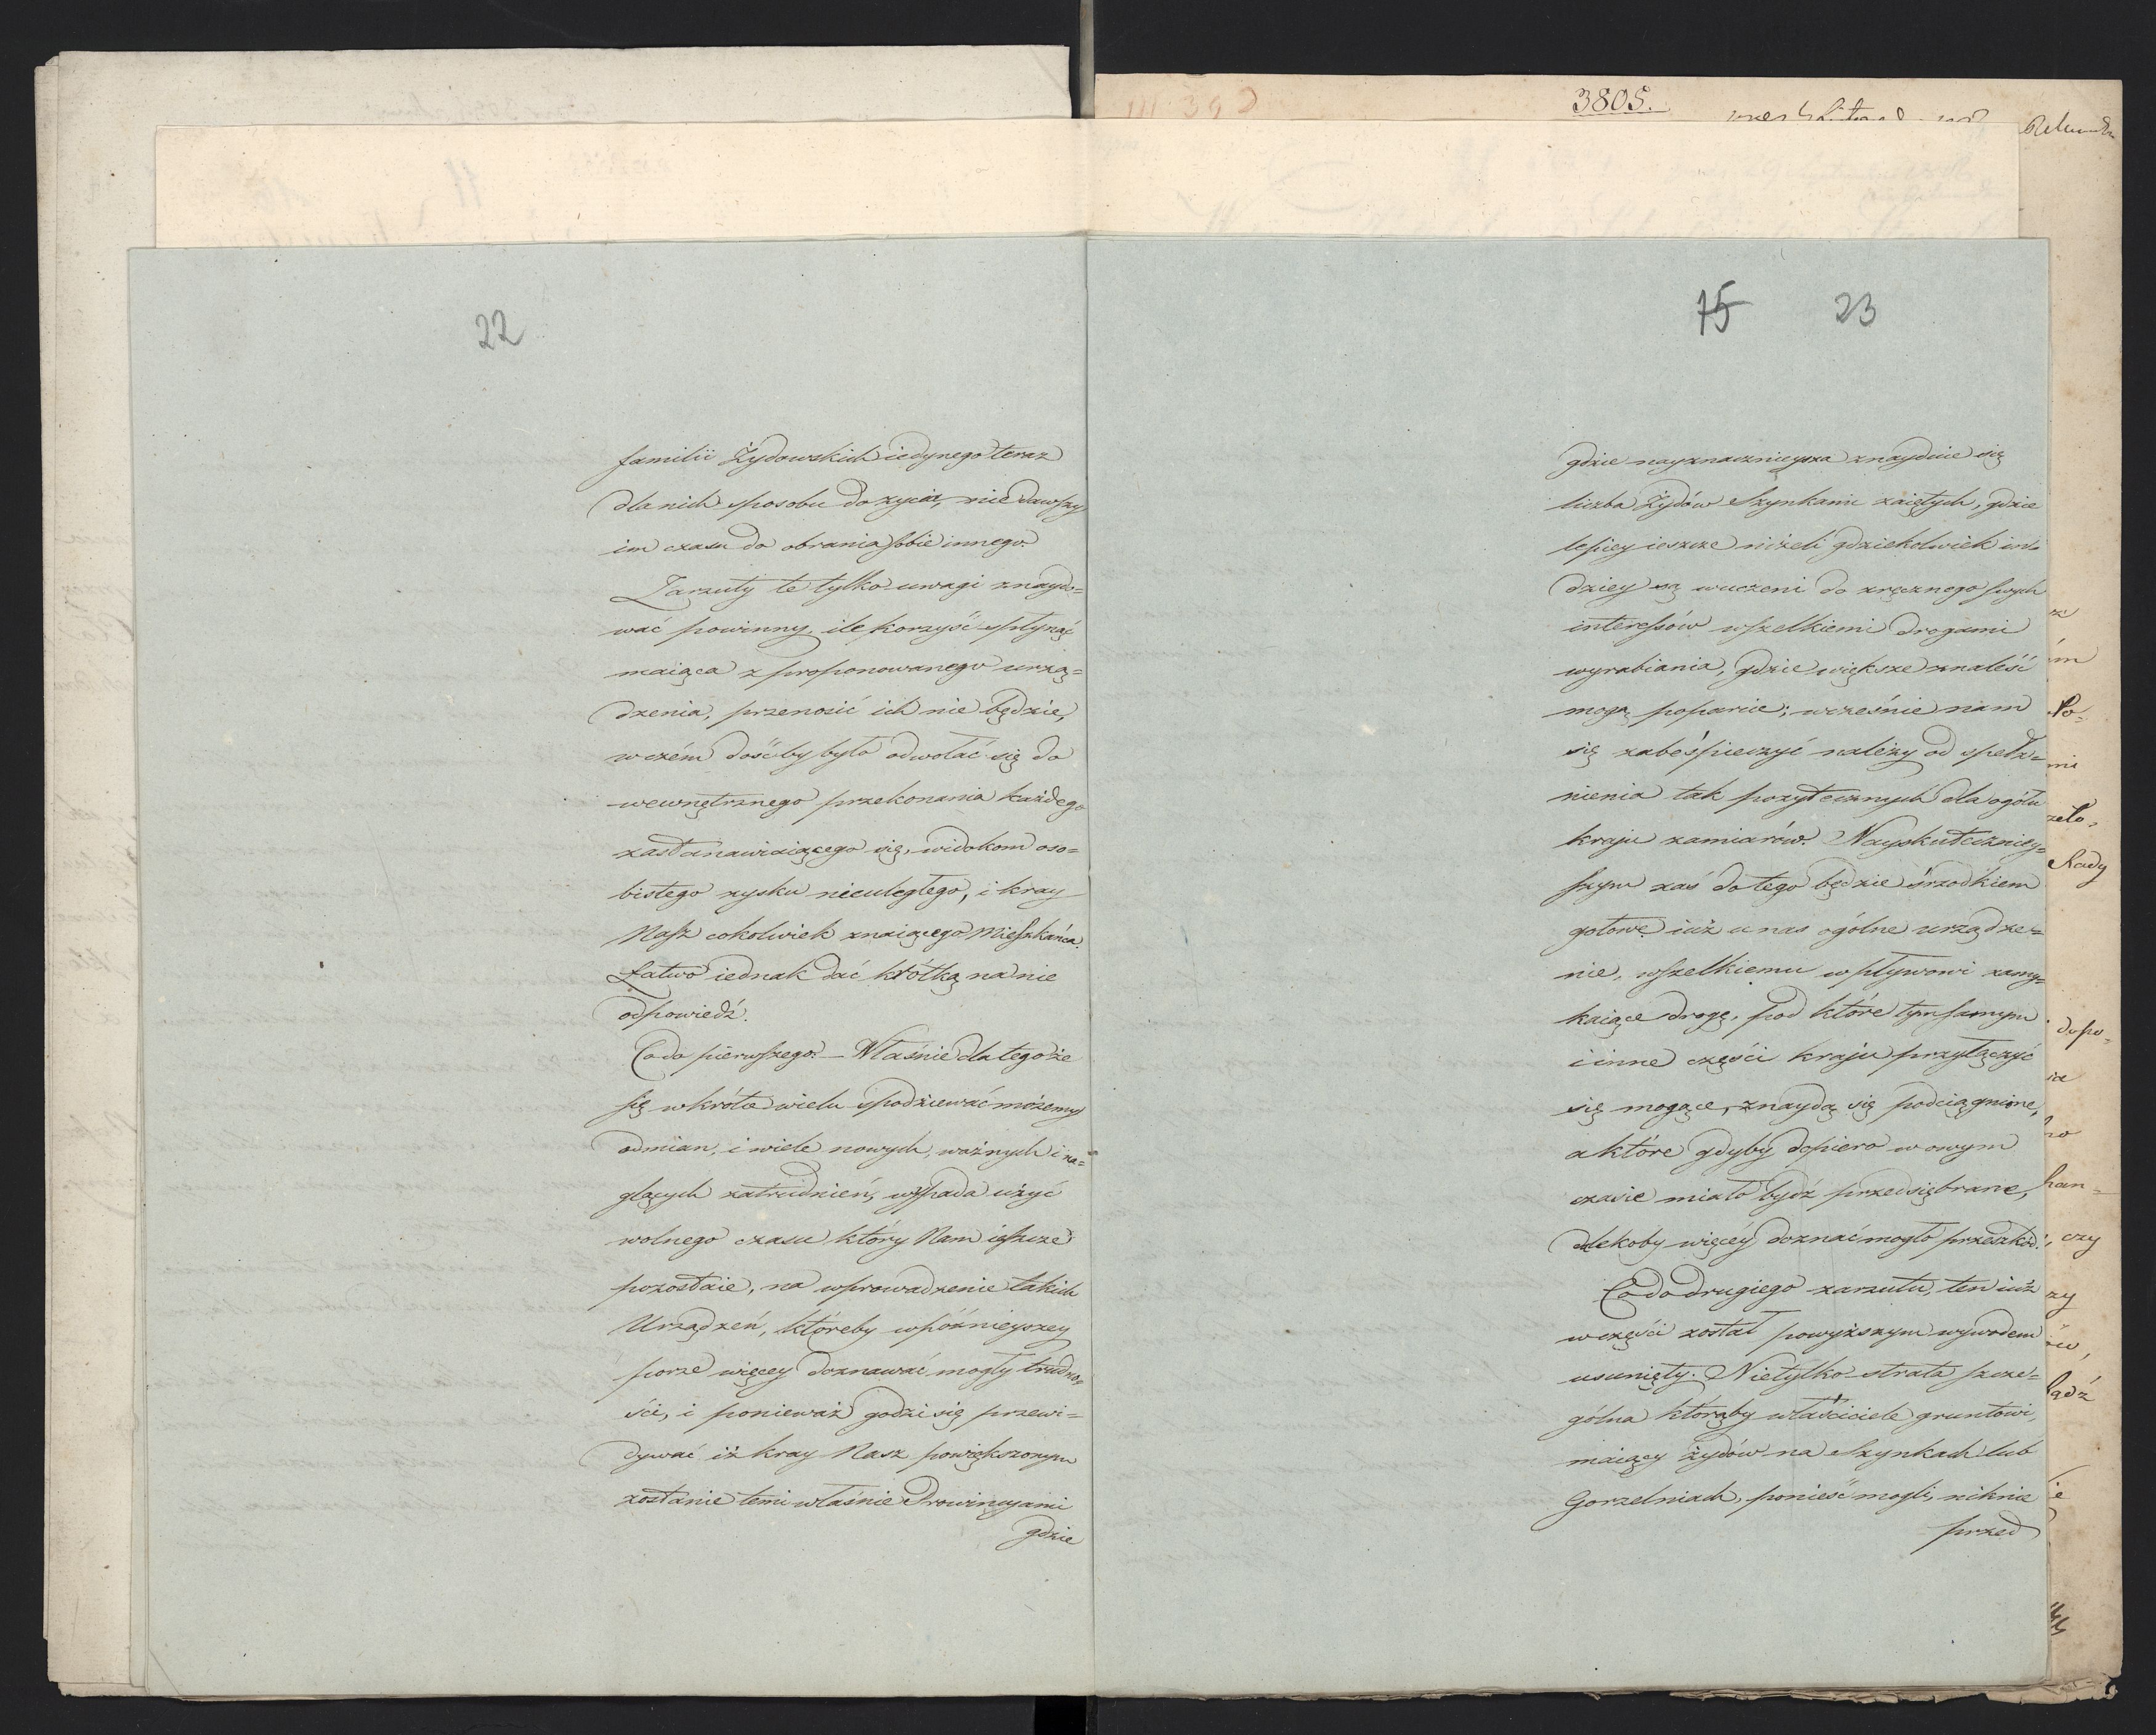 22
familii Żydowskich iedynego teraz
dla nich sposobu do życia, nie dawszy
im czasu do obrania sobie innego.
Zarzuty te tylko uwagi znaydo=
wać powinny ile korzyść spłynąć
maiąca z proponowanego urzą=
dzenia, przenosić ich nie będzie,
w czém dośćby było odwołać się do
wewnętrznego przekonania każdego
zastanawiaiącego się, widokom oso=
bistego zysku nieuległego, i kray
Nasz cokolwiek znaiącego Mieszkańca.
Łatwo iednak dać krótką na nie
odpowiedź.
Co do pierwszego. — Właśnie dla tego że
się wkrótce wielu spodziewać możemy
odmian, i wiele nowych, ważnych i na=
glących zatrudnień, wypada użyć
wolnego czasu który Nam ieszcze
pozostaie, na wprowadzenie takich
Urządzeń, któreby wpóźnieyszey
porze więcey doznawać mogły trudno=
ści, i ponieważ godzi się przewi=
dywać iż kray Nasz powiększonym
zostanie temi właśnie Prowincyami
gdzie
3805.
15 23
gdzie nayznacznieysza znaydzie się
liczba Żydów Szynkami zaiętych, gdzie
lepiey ieszcze niżeli gdziekolwiek in=
dziey są wuczeni do zręcznego swych
interessów wszelkiemi drogami
wyrabiania, gdzie większe znaleść
mogą poparcie; wcześnie nam
się zabeśpieczyć należy od spełz=
nienia tak pożytecznych dla ogółu
kraju zamiarów. Nayskuteczniey=
szym zaś do tego będzie śrzodkiem
gotowe iuż u nas ogólne urządze=
nie, wszelkiemu wpływowi zamy=
kaiące drogę, pod które tym samym
i inne części kraju przyłączyć
się mogące, znaydą się podciągnione,
a które gdyby dopiero w owym
czasie miało bydź przedsiębrane,
dalekoby więcéy doznać mogło przeszkód.
Co do drugiego zarzutu, ten iuż
w części został powyższym wywodem
usunięty. Nietylko strata szcze=
gólna którąby właściciele gruntowi,
maiący żydów na Szynkach lub
Gorzelniach, ponieść mogli, niknie
przed